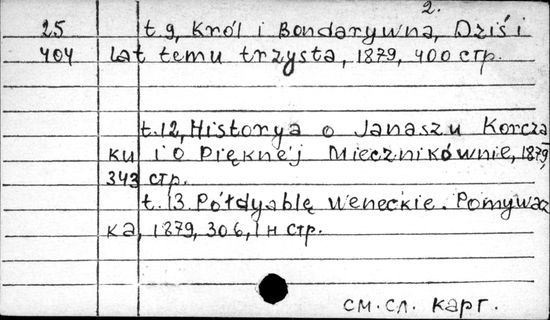 2.
25 t.9, Król i Bondarywna, Dziś i
404 lat temu trzysta, 1879, 400 стр.
t.12, Historya o Janaszu Korcza
ku i o Pięknéj Miecznikównie, 1879,
343 стр.
t.13. Półdyablę weneckie. Pomywacz
ka, 1879, 306, 1 н стр.
см. сл. карт.